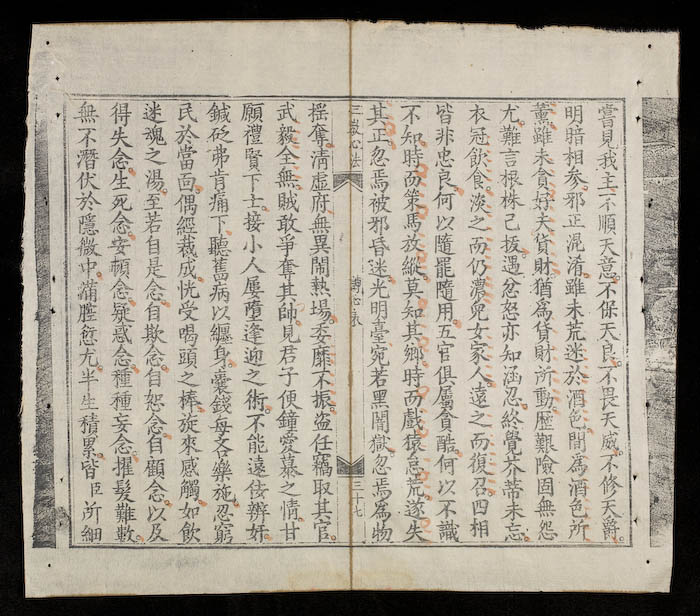 嘗見我主不順天意不保天良不畏天威不修天爵
明暗相參邪正混淆雖未荒迷於酒色間為酒色所
薰雖未貪好夫貨財猶為貨財所動歷艱險固無怨
尤難言根株已拔遇忿怒亦知涵忍終覺芥蒂未忘
衣冠飲食淡之而仍濃兒女家人遠之而復召四相
皆非忠良何以隨罷隨用五官俱屬貪酷何以不識
不知時而策馬放縱莫知其鄉時而戲猿怠荒遂失
其正忽焉被邪昏迷光明臺宛若黑闇獄忽焉為物
三教心法 三十七
搖奪清虛府無異鬧熱場委靡不振盜任竊取其官
武毅全無賊敢爭奪其帥見君子便鐘愛慕之情甘
願禮賢下士接小人屢墮逢迎之術不能遠佞辨奸
鍼砭弗肯痛下聽舊病以纏身囊錢毋吝樂施忍窮
民於當面偶經裁成恍受喝頭之棒旋來感觸如飲
迷魂之湯至若自是念自欺念自恕念自顧念以及
得失念生死念安頓念疑惑念種種妄念擢髮難數
無不潛伏於隱微中滿腔愆尤半生積累皆臣所細